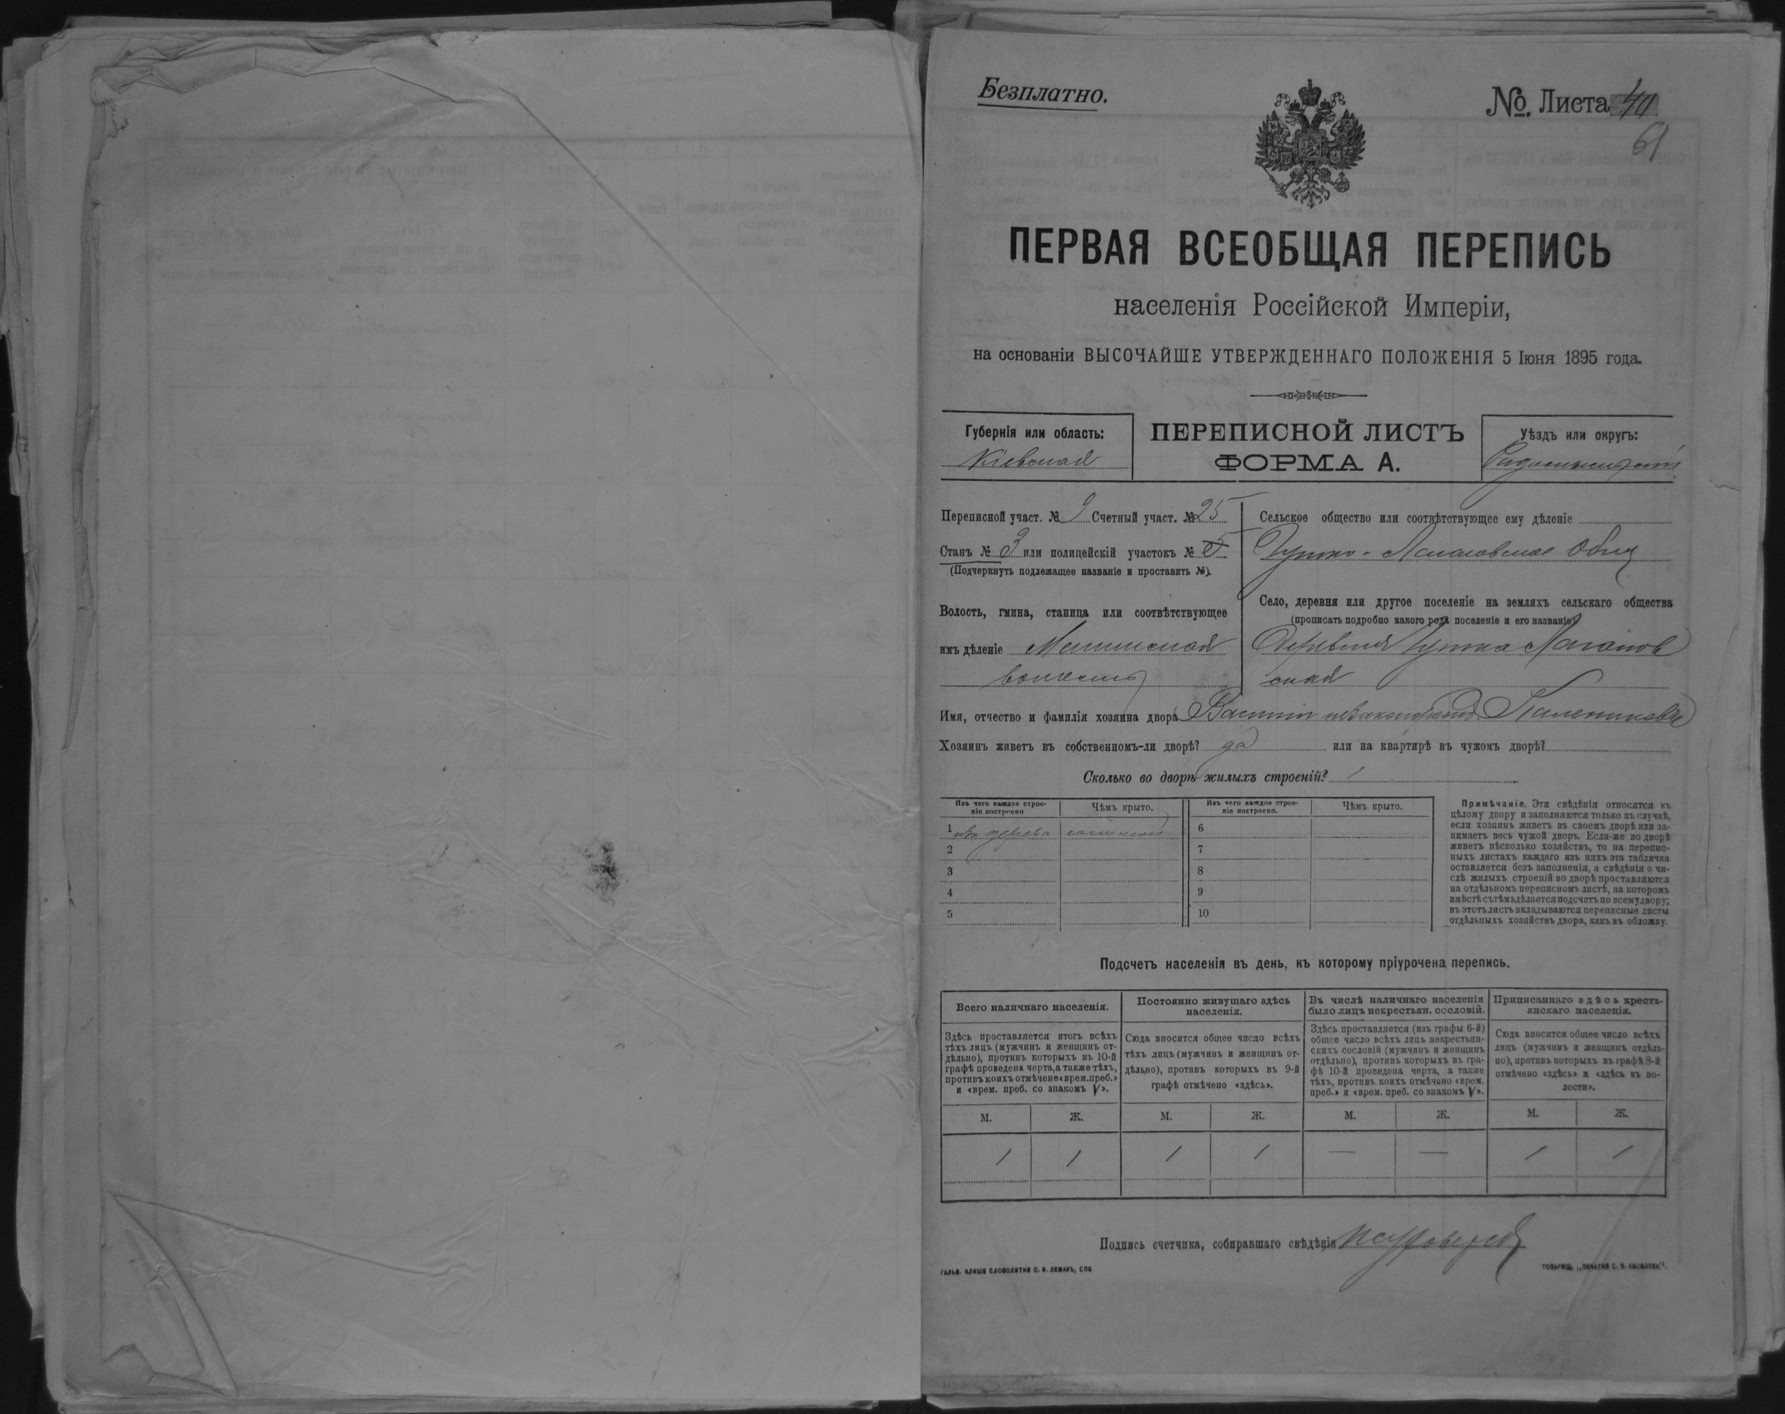 Безплатно.
№. Листа 40
61
ПЕРВАЯ ВСЕОБЩАЯ ПЕРЕПИСЬ
населенія Россійской Имперіи,
на основаніи ВЫСОЧАЙШЕ УТВЕРЖДЕННАГО ПОЛОЖЕНІЯ 5 Іюня 1895 года.
Губернія или область:
Кіевская
ПЕРЕПИСНОЙ ЛИСТЪ
ФОРМА А.
Уѣздъ или округъ:
Радомысльскій
Переписной участ. № 9 Счетный участ. № 25
Станъ № 3 или полицейскій участокъ № 5
(Подчеркнуть подлежащее названіе и проставить №).
Волость, гмина, станица или соотвѣтствующее
имъ дѣленіе
волость
Сельское общество или соотвѣтствующее ему дѣленіе
Село, деревня или другое поселеніе на земляхъ сельскаго общества
(прописать подробно какого рода поселеніе и его названіе)
Деревня
ская
Имя, отчество и фамилія хозяина двора Василій
Хозяинъ живетъ въ собственномъ-ли дворѣ? да или на квартирѣ въ чужомъ дворѣ?
Сколько во дворѣ жилыхъ строеній? 1
Изъ чего каждое строеніе построено
Чѣмъ крыто.
Изъ чего каждое строеніе построено.
Чѣмъ крыто.
1 изъ дерева соломой
2
3
4
5
6
7
8
9
10
Примѣчаніе. Эти свѣдѣнія относятся къ
цѣлому двору и заполняются только въ случаѣ,
если хозяинъ живетъ въ своемъ дворѣ или за-
нимаетъ весь чужой дворъ. Если-же во дворѣ
живетъ нѣсколько хозяйствъ, то на перепис-
ныхъ листахъ каждаго изъ нихъ эта табличка
оставляется безъ заполненія, а свѣдѣнія о чи-
слѣ жилыхъ строеній во дворѣ проставляются
на отдѣльномъ переписномъ листѣ, на которомъ
вмѣстѣ съ тѣмъ дѣлается подсчетъ по всему двору;
въ этотъ листъ вкладываются переписные листы
отдѣльныхъ хозяйствъ двора, какъ въ обложку.
Подсчетъ населенія въ день, къ которому пріурочена перепись.
Всего наличнаго населенія.
Здѣсь проставляется итогъ всѣхъ
тѣхъ лицъ (мужчинъ и женщинъ от-
дѣльно), противъ которыхъ въ 10-й
графѣ проведена черта, а также тѣхъ,
противъ коихъ отмѣчено «врем. преб.»
и «врем. преб. со знакомъ V».
Постоянно живущаго здѣсь
населенія.
Сюда вносится общее число всѣхъ
тѣхъ лицъ (мужчинъ и женщинъ от-
дѣльно), противъ которыхъ въ 9-й
графѣ отмѣчено «здѣсь».
Въ числѣ наличнаго населенія
было лицъ некрестьян. сословій.
Здѣсь проставляется (изъ графы 6-й)
общее число всѣхъ лицъ некрестьян-
скихъ сословій (мужчинъ и женщинъ
отдѣльно), противъ которыхъ въ гра-
фѣ 10-й проведена черта, а также
тѣхъ, противъ коихъ отмѣчено «врем.
преб.» и «врем. преб. со знакомъ V».
Приписаннаго здѣсь кресть-
янскаго населенія.
Сюда вносится общее число всѣхъ
лицъ (мужчинъ и женщинъ отдѣль-
но), противъ которыхъ въ графѣ 8-й
отмѣчено «здѣсь» и «здѣсь въ во-
лости».
М. Ж. М. Ж. М. Ж. М. Ж.
1 1 1 1 — — 1 1
Подпись счетчика, собиравшаго свѣдѣнія
ГАЛЬВ. КЛИШЕ СЛОВОЛИТНИ О. И. ЛЕМАНЪ, СПБ.
ТОВАРИЩ. „ПЕЧАТНЯ С. П. ЯКОВЛЕВА“.